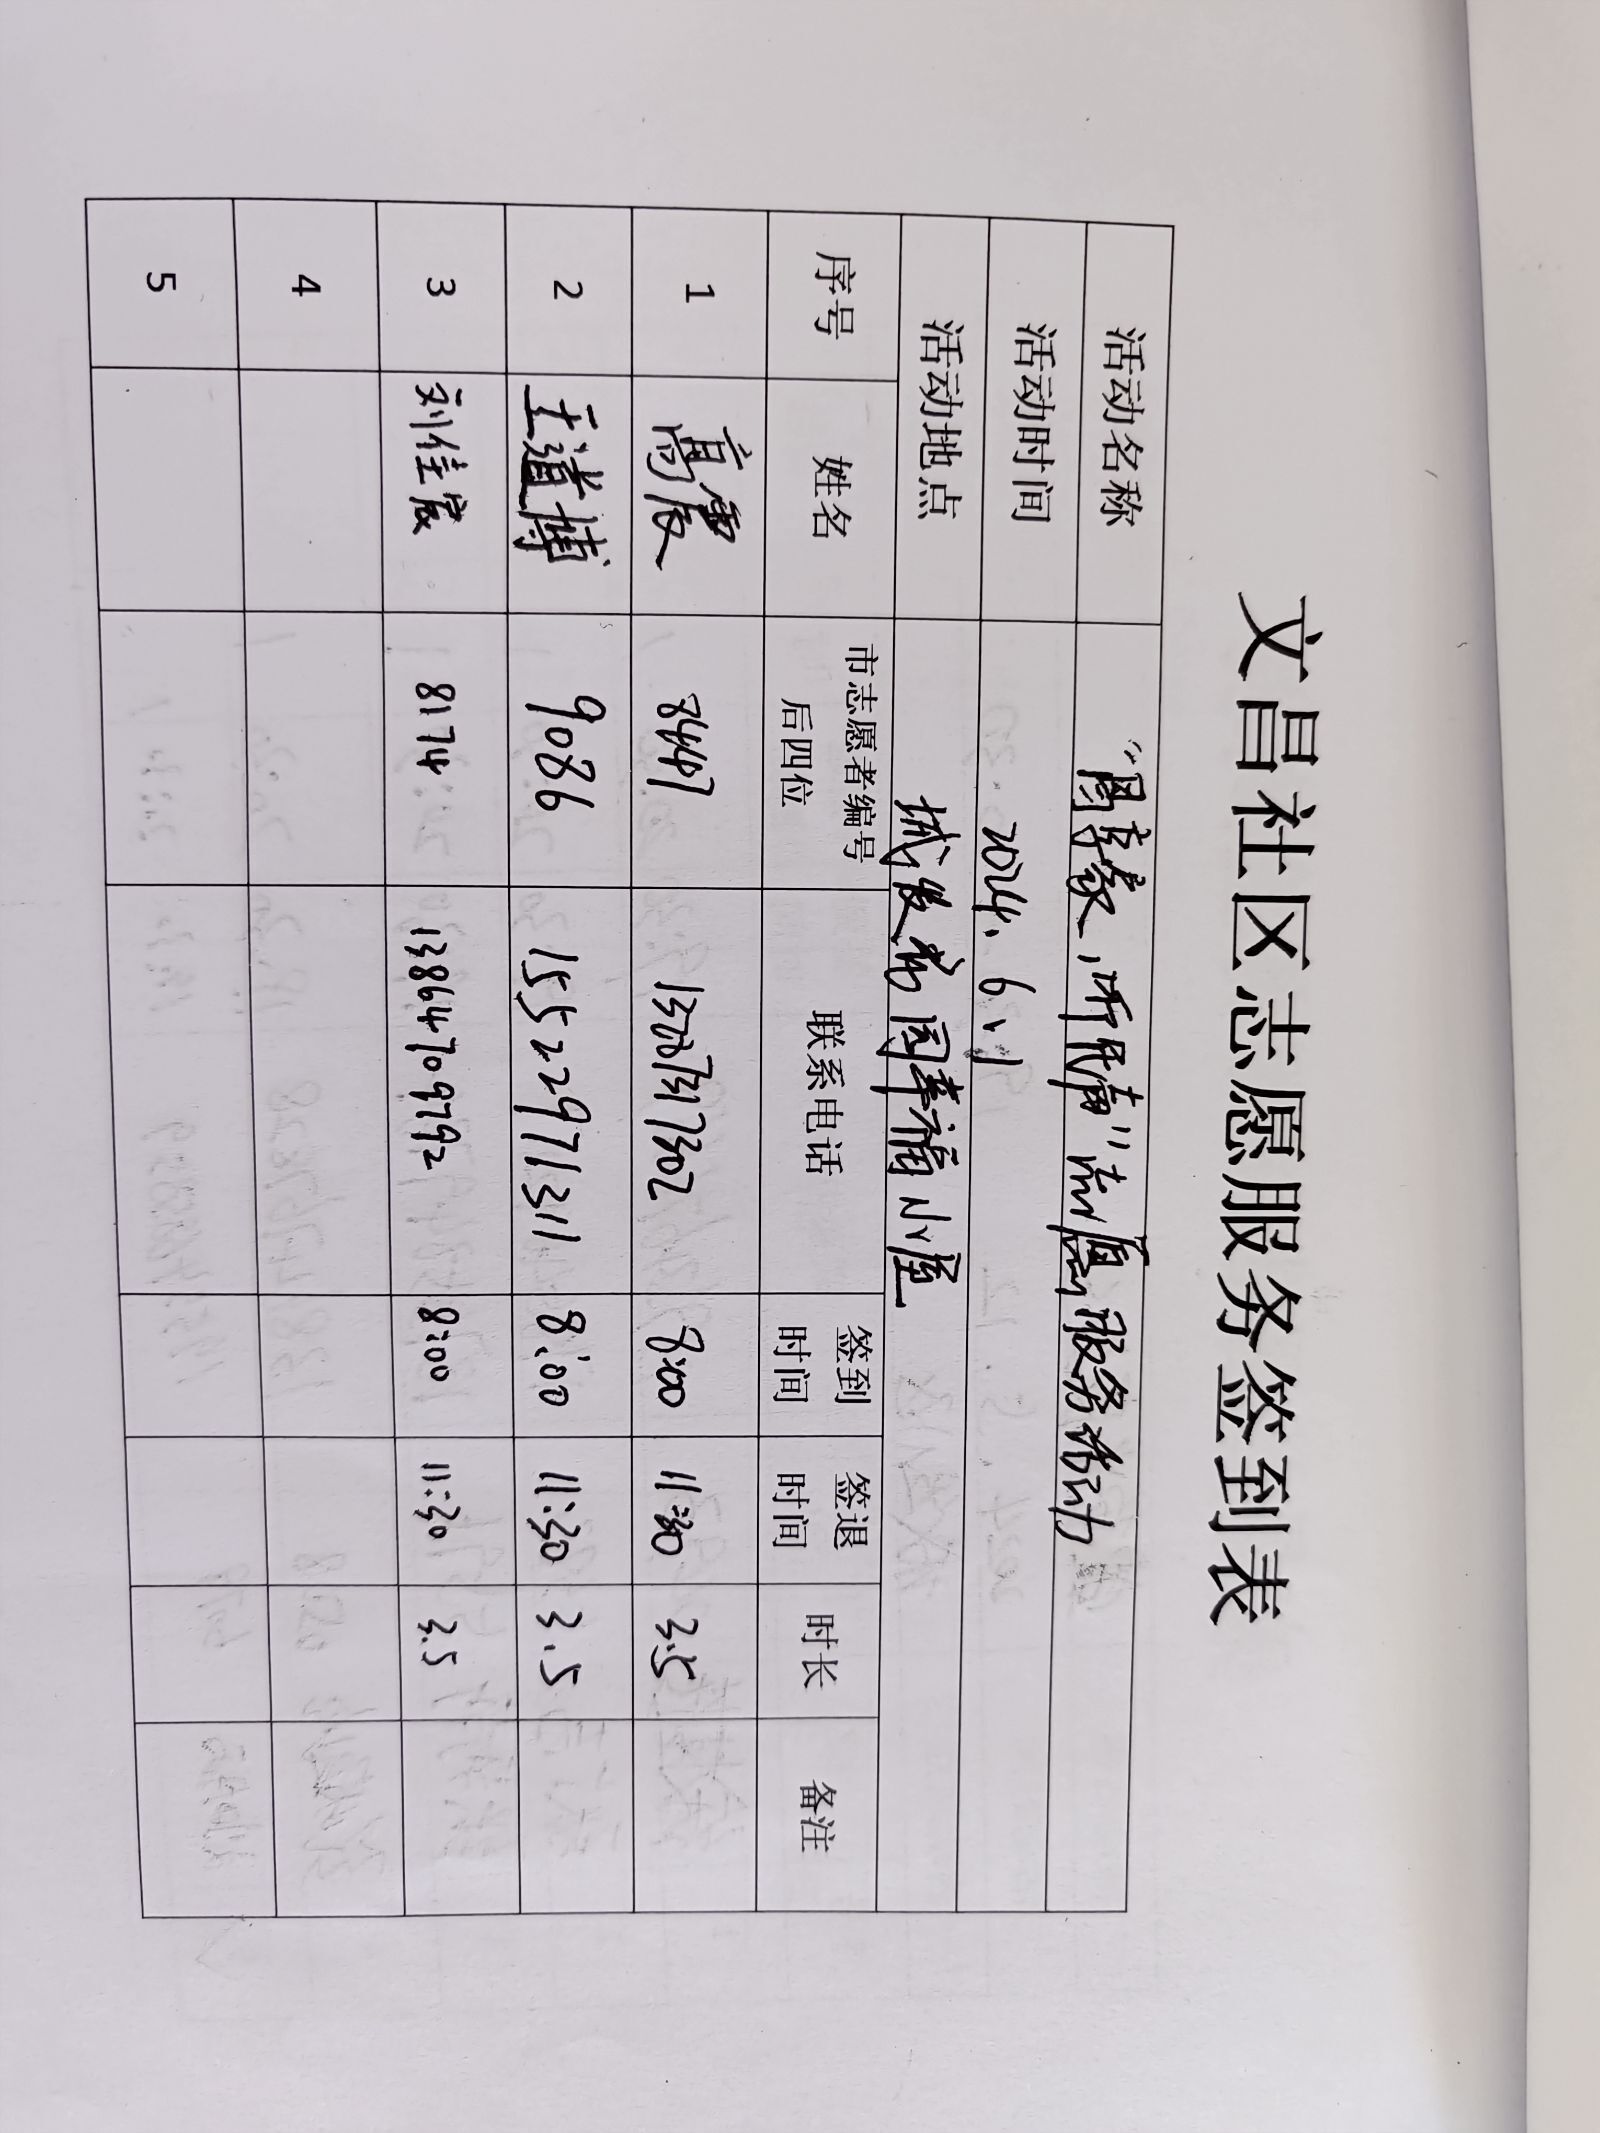 文昌社区志愿服务签到表
活动名称 "圆喜, 听民情"志愿服务活动
活动时间 2024.6.1
活动地点 城发 园幸福小屋
序号 姓名 市志愿者编号后四位 联系电话 签到时间 签退时间 时长 备注
1 高震 8447 8:00 11:30 3.5
2 王道博 9086 15522971311 8:00 11:30 3.5
3 刘佳宸 8174 13864709792 8:00 11:30 3.5
4
5